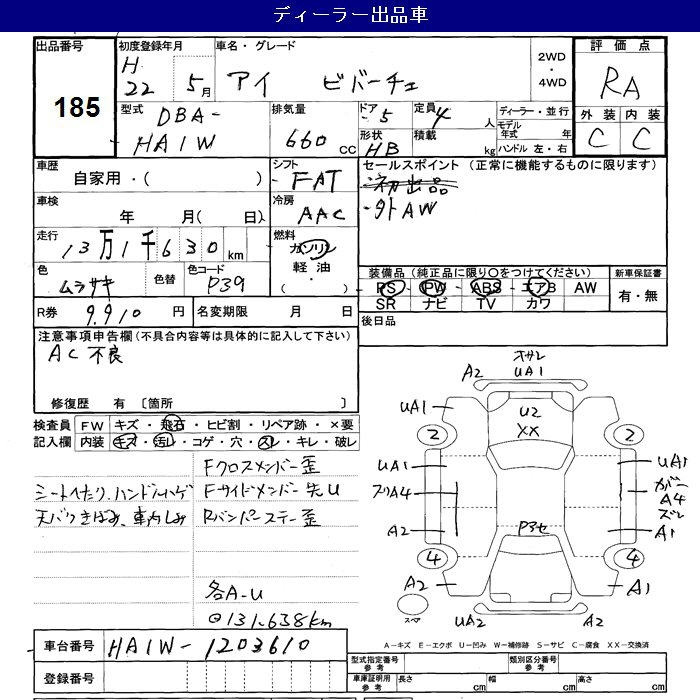 ディーラー出品車
出品番号
185
初度登録年月
H
22 5月
車名・グレード
アイ ビバーチェ
2WD
・
4WD
評価点
RA
外装 内装
C C
型式
DBA-
HA1W
排気量
660 cc
ドア 5
形状 HB
定員 4 人
積載 kg
ディーラー・並行
モデル年式 年
ハンドル 左・右
車歴
自家用・( )
車検
年 月( 日)
走行
13万1千630km
色
ムラサキ
色替
色コード
P39
シフト
FAT
冷房
AAC
燃料
ガソリン
軽油・
( )
セールスポイント (正常に機能するものに限ります)
・初出品
・外AW
装備品 (純正品に限り○をつけてください)
PS PW ABS エアB AW
SR ナビ TV カワ
新車保証書
有・無
R券 9,910 円
名変期限 月 日
後日品
注意事項申告欄 (不具合内容等は具体的に記入して下さい)
AC不良
修復歴 有 〔箇所 〕
検査員記入欄
FW キズ・飛石・ヒビ割・リペア跡・×要
内装 キズ・汚レ・コゲ・穴・スレ・キレ・破レ
Fクロスメンバー歪
シートヘたり、ハンドルハゲ
Fサイドメンバー先U
天バリきばみ、車内しみ
Rバンパーステー歪
各A-U
◎131,638km
オサレ
A2 UA1
UA1 A1
U2
XX
2 2
UA1 UA1
スリA4
ガバー
A4
ズレ
A2 A1
P3セ
4 4
A2 A1
スペア
UA2 A2
A-キズ E-エクボ U-凹み W-補修跡 S-サビ C-腐食 XX-交換済
車台番号 HA1W-1203610
登録番号
型式指定番号
参考
類別区分番号
参考
車庫証明用
参考
長さ cm
幅 cm
高さ cm